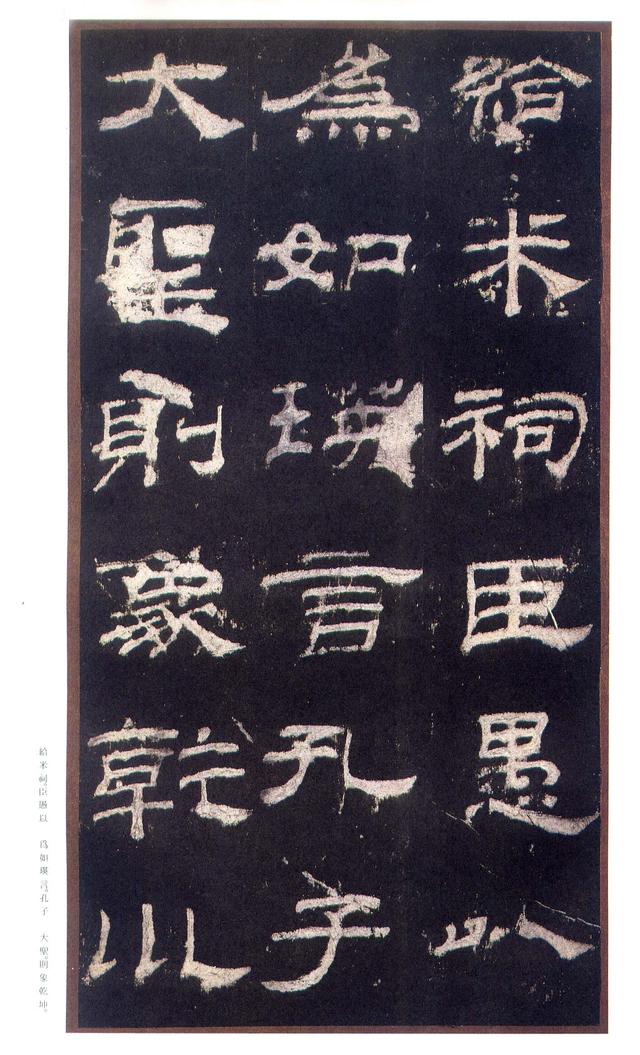 給米祠臣愚以
為如瑛言孔子
大聖則象乾川
給米祠。臣愚以　爲如瑛言。孔子　大聖。則象乾坤。